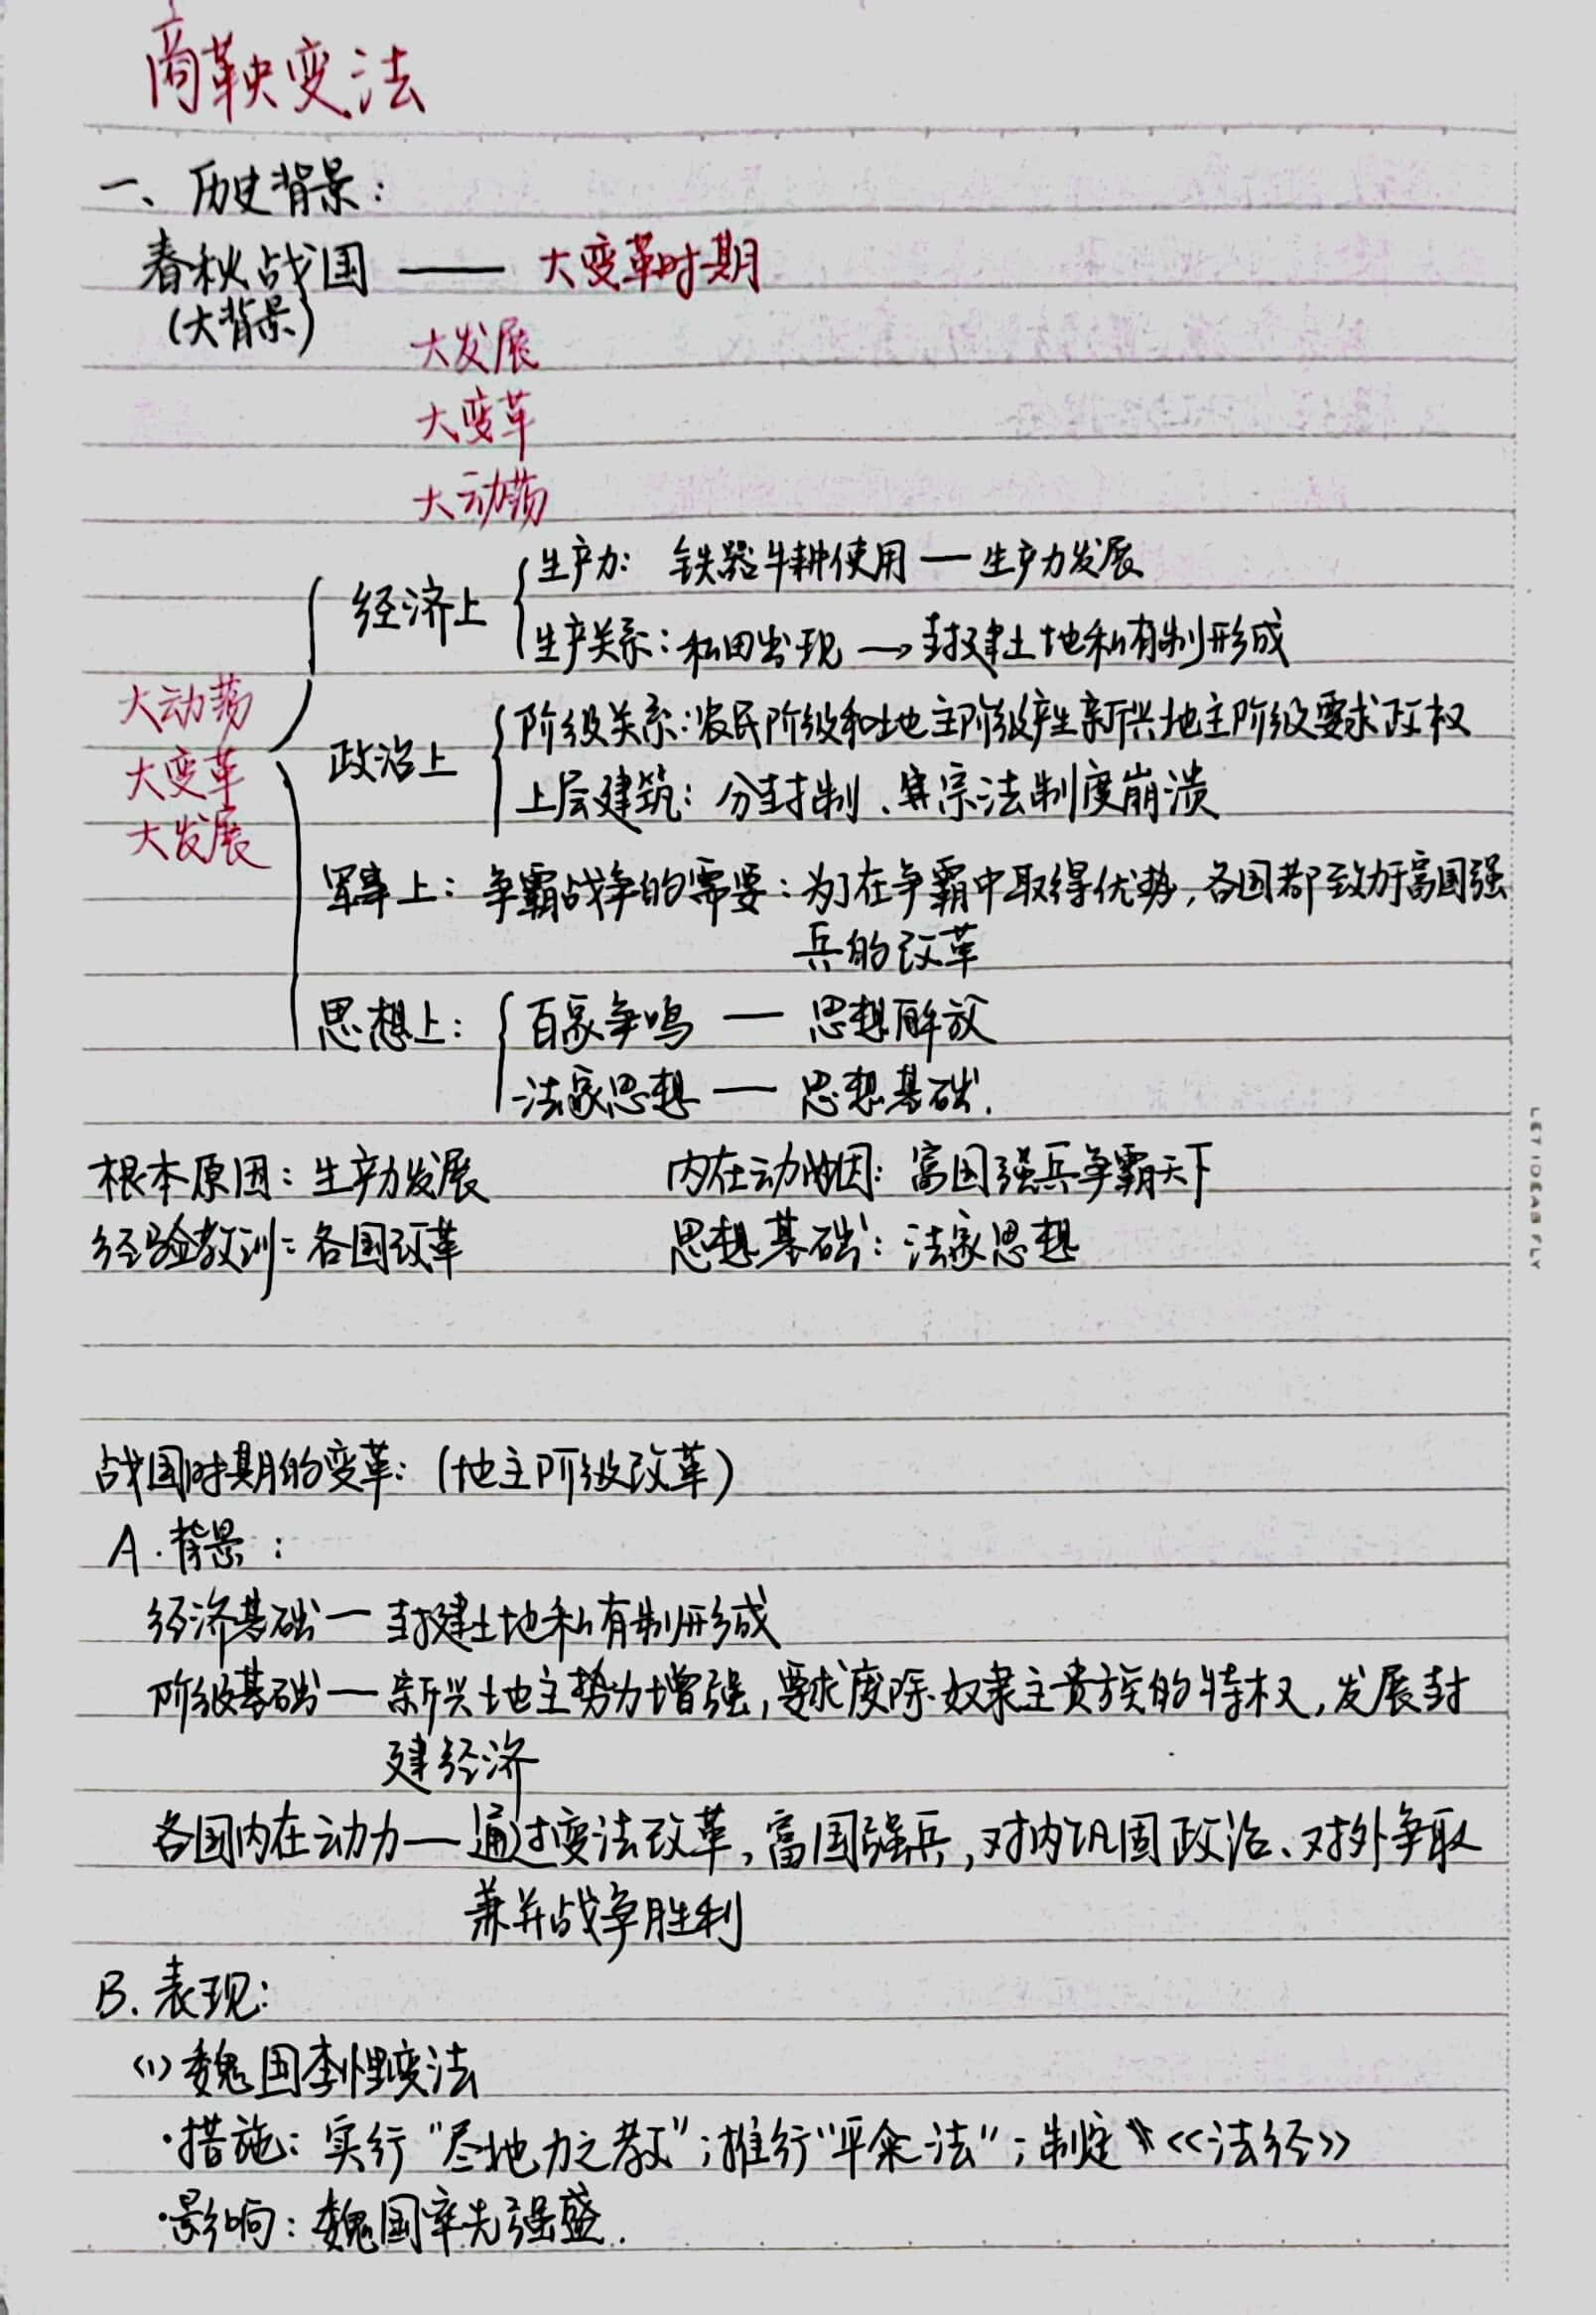 商鞅变法
一、历史背景：
春秋战国 —— 大变革时期
(大背景)
大发展
大变革
大动荡
经济上
生产力： 铁器牛耕使用 — 生产力发展
生产关系：私田出现 → 封建土地私有制形成
大动荡
大变革
大发展
政治上
阶级关系：农民阶级和地主阶级产生新兴地主阶级要求政权
上层建筑：分封制、宗法制度崩溃
军事上：争霸战争的需要：为了在争霸中取得优势，各国都致力于富国强
兵的改革
思想上：
百家争鸣 — 思想解放
法家思想 — 思想基础.
根本原因：生产力发展 内在动因：富国强兵争霸天下
经验教训：各国改革 思想基础：法家思想
战国时期的变革：(地主阶级改革)
A.背景：
经济基础—封建土地私有制形成
阶级基础—新兴地主势力增强，要求废除奴隶主贵族的特权，发展封
建经济
各国内在动力—通过变法改革，富国强兵，对内巩固政治、对外争取
兼并战争胜利
B.表现：
(1)魏国李悝变法
·措施：实行“尽地力之教”；推行“平籴法”；制定《法经》
·影响：魏国率先强盛.
LET IDEAS FLY